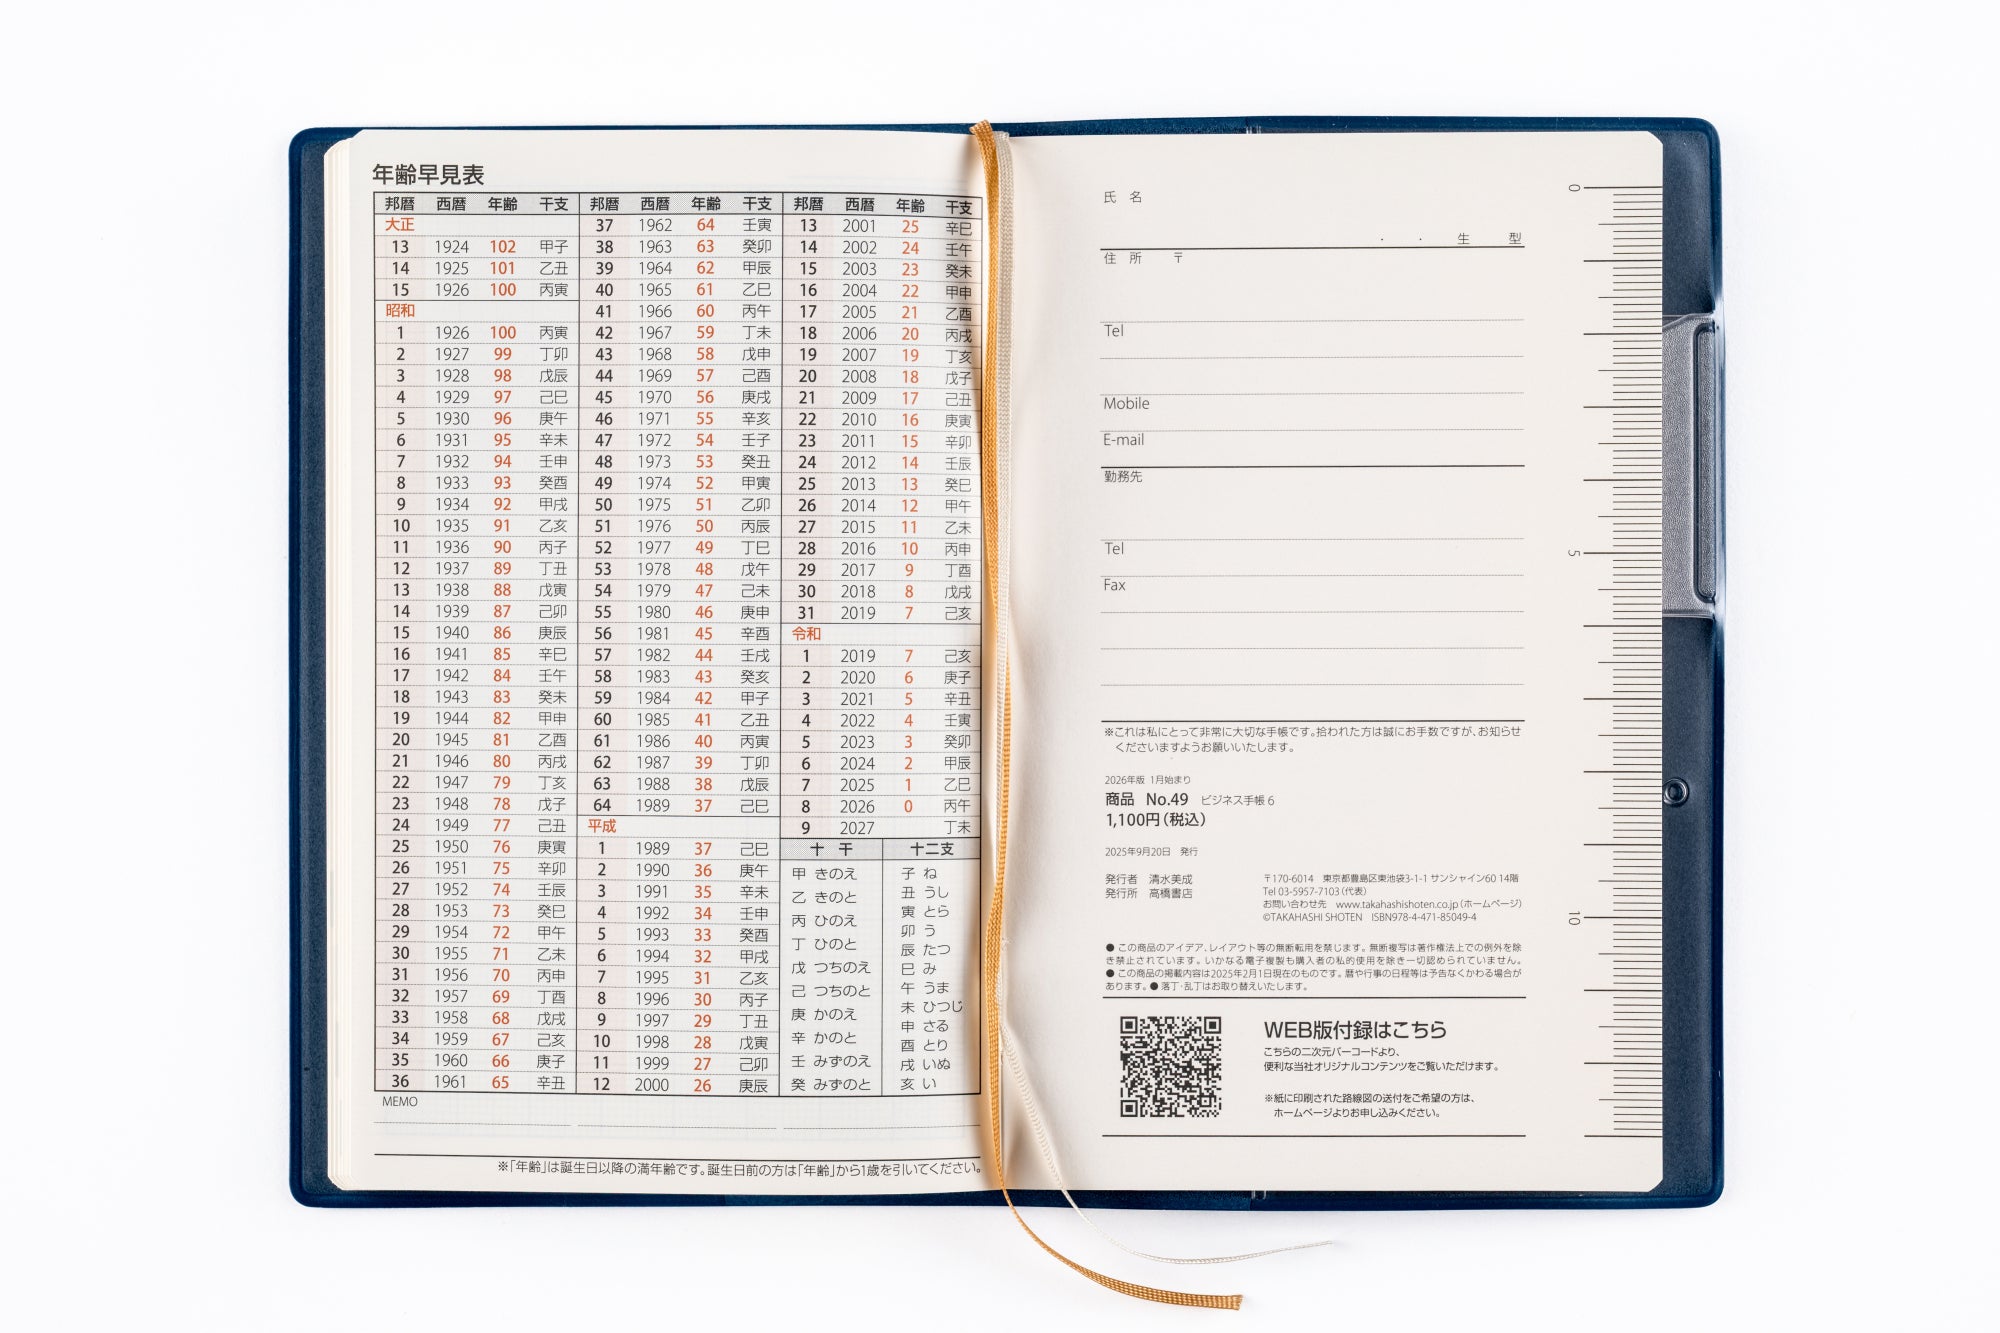 年齢早見表
邦暦 西暦 年齢 干支
大正
13 1924 102 甲子
14 1925 101 乙丑
15 1926 100 丙寅
昭和
1 1926 100 丙寅
2 1927 99 丁卯
3 1928 98 戊辰
4 1929 97 己巳
5 1930 96 庚午
6 1931 95 辛未
7 1932 94 壬申
8 1933 93 癸酉
9 1934 92 甲戌
10 1935 91 乙亥
11 1936 90 丙子
12 1937 89 丁丑
13 1938 88 戊寅
14 1939 87 己卯
15 1940 86 庚辰
16 1941 85 辛巳
17 1942 84 壬午
18 1943 83 癸未
19 1944 82 甲申
20 1945 81 乙酉
21 1946 80 丙戌
22 1947 79 丁亥
23 1948 78 戊子
24 1949 77 己丑
25 1950 76 庚寅
26 1951 75 辛卯
27 1952 74 壬辰
28 1953 73 癸巳
29 1954 72 甲午
30 1955 71 乙未
31 1956 70 丙申
32 1957 69 丁酉
33 1958 68 戊戌
34 1959 67 己亥
35 1960 66 庚子
36 1961 65 辛丑
邦暦 西暦 年齢 干支
37 1962 64 壬寅
38 1963 63 癸卯
39 1964 62 甲辰
40 1965 61 乙巳
41 1966 60 丙午
42 1967 59 丁未
43 1968 58 戊申
44 1969 57 己酉
45 1970 56 庚戌
46 1971 55 辛亥
47 1972 54 壬子
48 1973 53 癸丑
49 1974 52 甲寅
50 1975 51 乙卯
51 1976 50 丙辰
52 1977 49 丁巳
53 1978 48 戊午
54 1979 47 己未
55 1980 46 庚申
56 1981 45 辛酉
57 1982 44 壬戌
58 1983 43 癸亥
59 1984 42 甲子
60 1985 41 乙丑
61 1986 40 丙寅
62 1987 39 丁卯
63 1988 38 戊辰
64 1989 37 己巳
平成
1 1989 37 己巳
2 1990 36 庚午
3 1991 35 辛未
4 1992 34 壬申
5 1993 33 癸酉
6 1994 32 甲戌
7 1995 31 乙亥
8 1996 30 丙子
9 1997 29 丁丑
10 1998 28 戊寅
11 1999 27 己卯
12 2000 26 庚辰
邦暦 西暦 年齢 干支
13 2001 25 辛巳
14 2002 24 壬午
15 2003 23 癸未
16 2004 22 甲申
17 2005 21 乙酉
18 2006 20 丙戌
19 2007 19 丁亥
20 2008 18 戊子
21 2009 17 己丑
22 2010 16 庚寅
23 2011 15 辛卯
24 2012 14 壬辰
25 2013 13 癸巳
26 2014 12 甲午
27 2015 11 乙未
28 2016 10 丙申
29 2017 9 丁酉
30 2018 8 戊戌
31 2019 7 己亥
令和
1 2019 7 己亥
2 2020 6 庚子
3 2021 5 辛丑
4 2022 4 壬寅
5 2023 3 癸卯
6 2024 2 甲辰
7 2025 1 乙巳
8 2026 0 丙午
9 2027 丁未
十干
甲 きのえ
乙 きのと
丙 ひのえ
丁 ひのと
戊 つちのえ
己 つちのと
庚 かのえ
辛 かのと
壬 みずのえ
癸 みずのと
十二支
子 ね
丑 うし
寅 とら
卯 う
辰 たつ
巳 み
午 うま
未 ひつじ
申 さる
酉 とり
戌 いぬ
亥 い
MEMO
※「年齢」は誕生日以降の満年齢です。誕生日前の方は「年齢」から1歳を引いてください。
氏 名
・ ・ 生 型
住 所 〒
Tel
Mobile
E-mail
勤務先
Tel
Fax
※これは私にとって非常に大切な手帳です。拾われた方は誠にお手数ですが、お知らせ
くださいますようお願いいたします。
2026年版 1月始まり
商品 No.49 ビジネス手帳 6
1,100円(税込)
2025年9月20日 発行
発行者 清水美成
発行所 高橋書店
〒170-6014 東京都豊島区東池袋3-1-1 サンシャイン60 14階
Tel 03-5957-7103(代表)
お問い合わせ先 www.takahashishoten.co.jp(ホームページ)
©TAKAHASHI SHOTEN ISBN978-4-471-85049-4
● この商品のアイデア、レイアウト等の無断転用を禁じます。無断複写は著作権法上での例外を除
き禁止されています。いかなる電子複製も購入者の私的使用を除き一切認められていません。
● この商品の掲載内容は2025年2月1日現在のものです。暦や行事の日程等は予告なくかわる場合が
あります。● 落丁・乱丁はお取り替えいたします。
WEB版付録はこちら
こちらの二次元バーコードより、
便利な当社オリジナルコンテンツをご覧いただけます。
※紙に印刷された路線図の送付をご希望の方は、
ホームページよりお申し込みください。
0
5
10